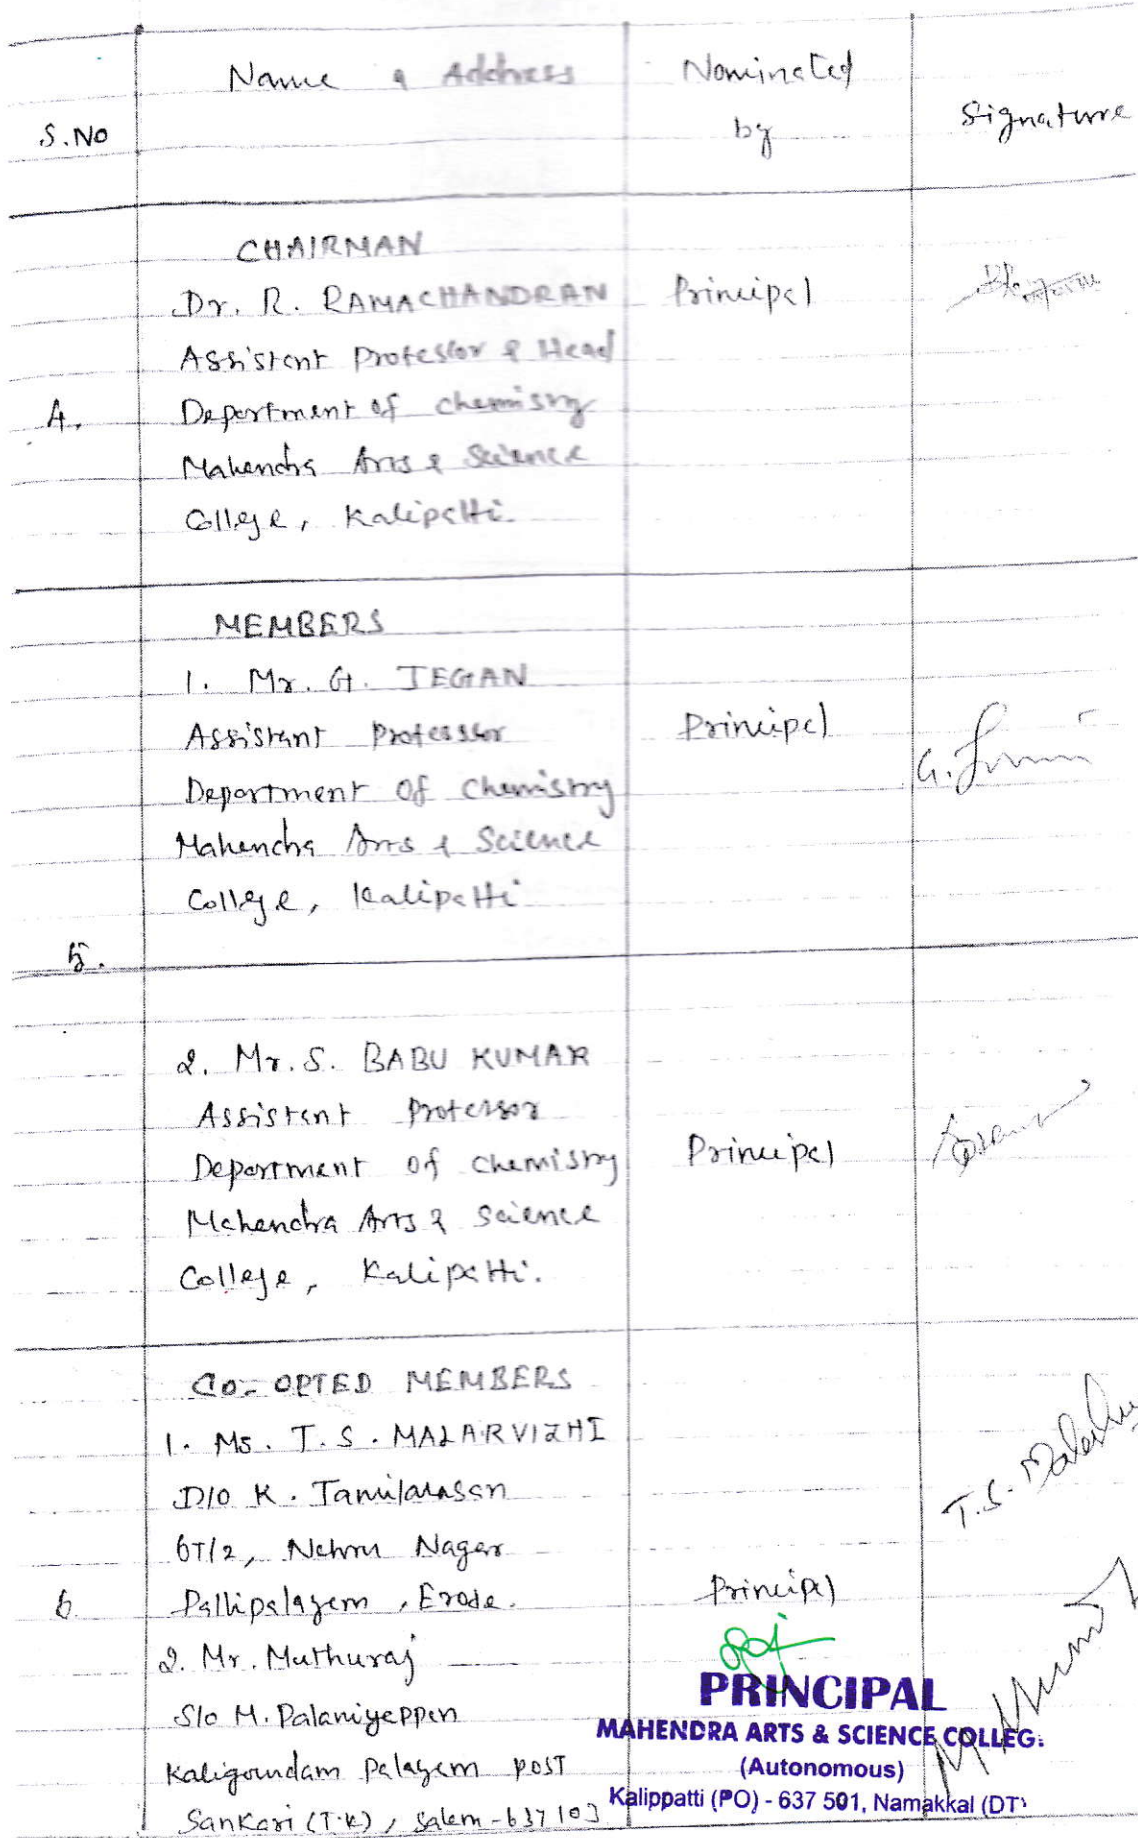 S.No
Name & Address
Nominated by
Signature
CHAIRMAN
4.
Dr. R. RAMACHANDRAN
Assistant Professor & Head
Department of Chemistry
Mahendra Arts & Science
College, Kalipatti.
Principal
MEMBERS
5.
1. Mr. G. JEGAN
Assistant Professor
Department of Chemistry
Mahendra Arts & Science
College, Kalipatti
Principal
G.
2. Mr. S. BABU KUMAR
Assistant Professor
Department of Chemistry
Mahendra Arts & Science
College, Kalipatti.
Principal
CO-OPTED MEMBERS
6
1. Ms. T. S. MALARVIZHI
D/o K. Tamilarasan
6T/2, Nehru Nagar
Pallipalayam, Erode.
Principal
T.S.
2. Mr. Muthuraj
S/o M. Palaniyappan
Kaligoundam Palayam post
Sankari (T.K), Salem-637103
PRINCIPAL
MAHENDRA ARTS & SCIENCE COLLEG
(Autonomous)
Kalippatti (PO) - 637 501, Namakkal (DT)